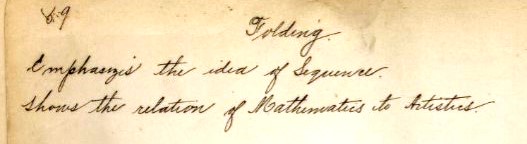 69
Folding.
Emphasizis the idea of Sequence.
Shows the relation of Mathematics to Artistics.